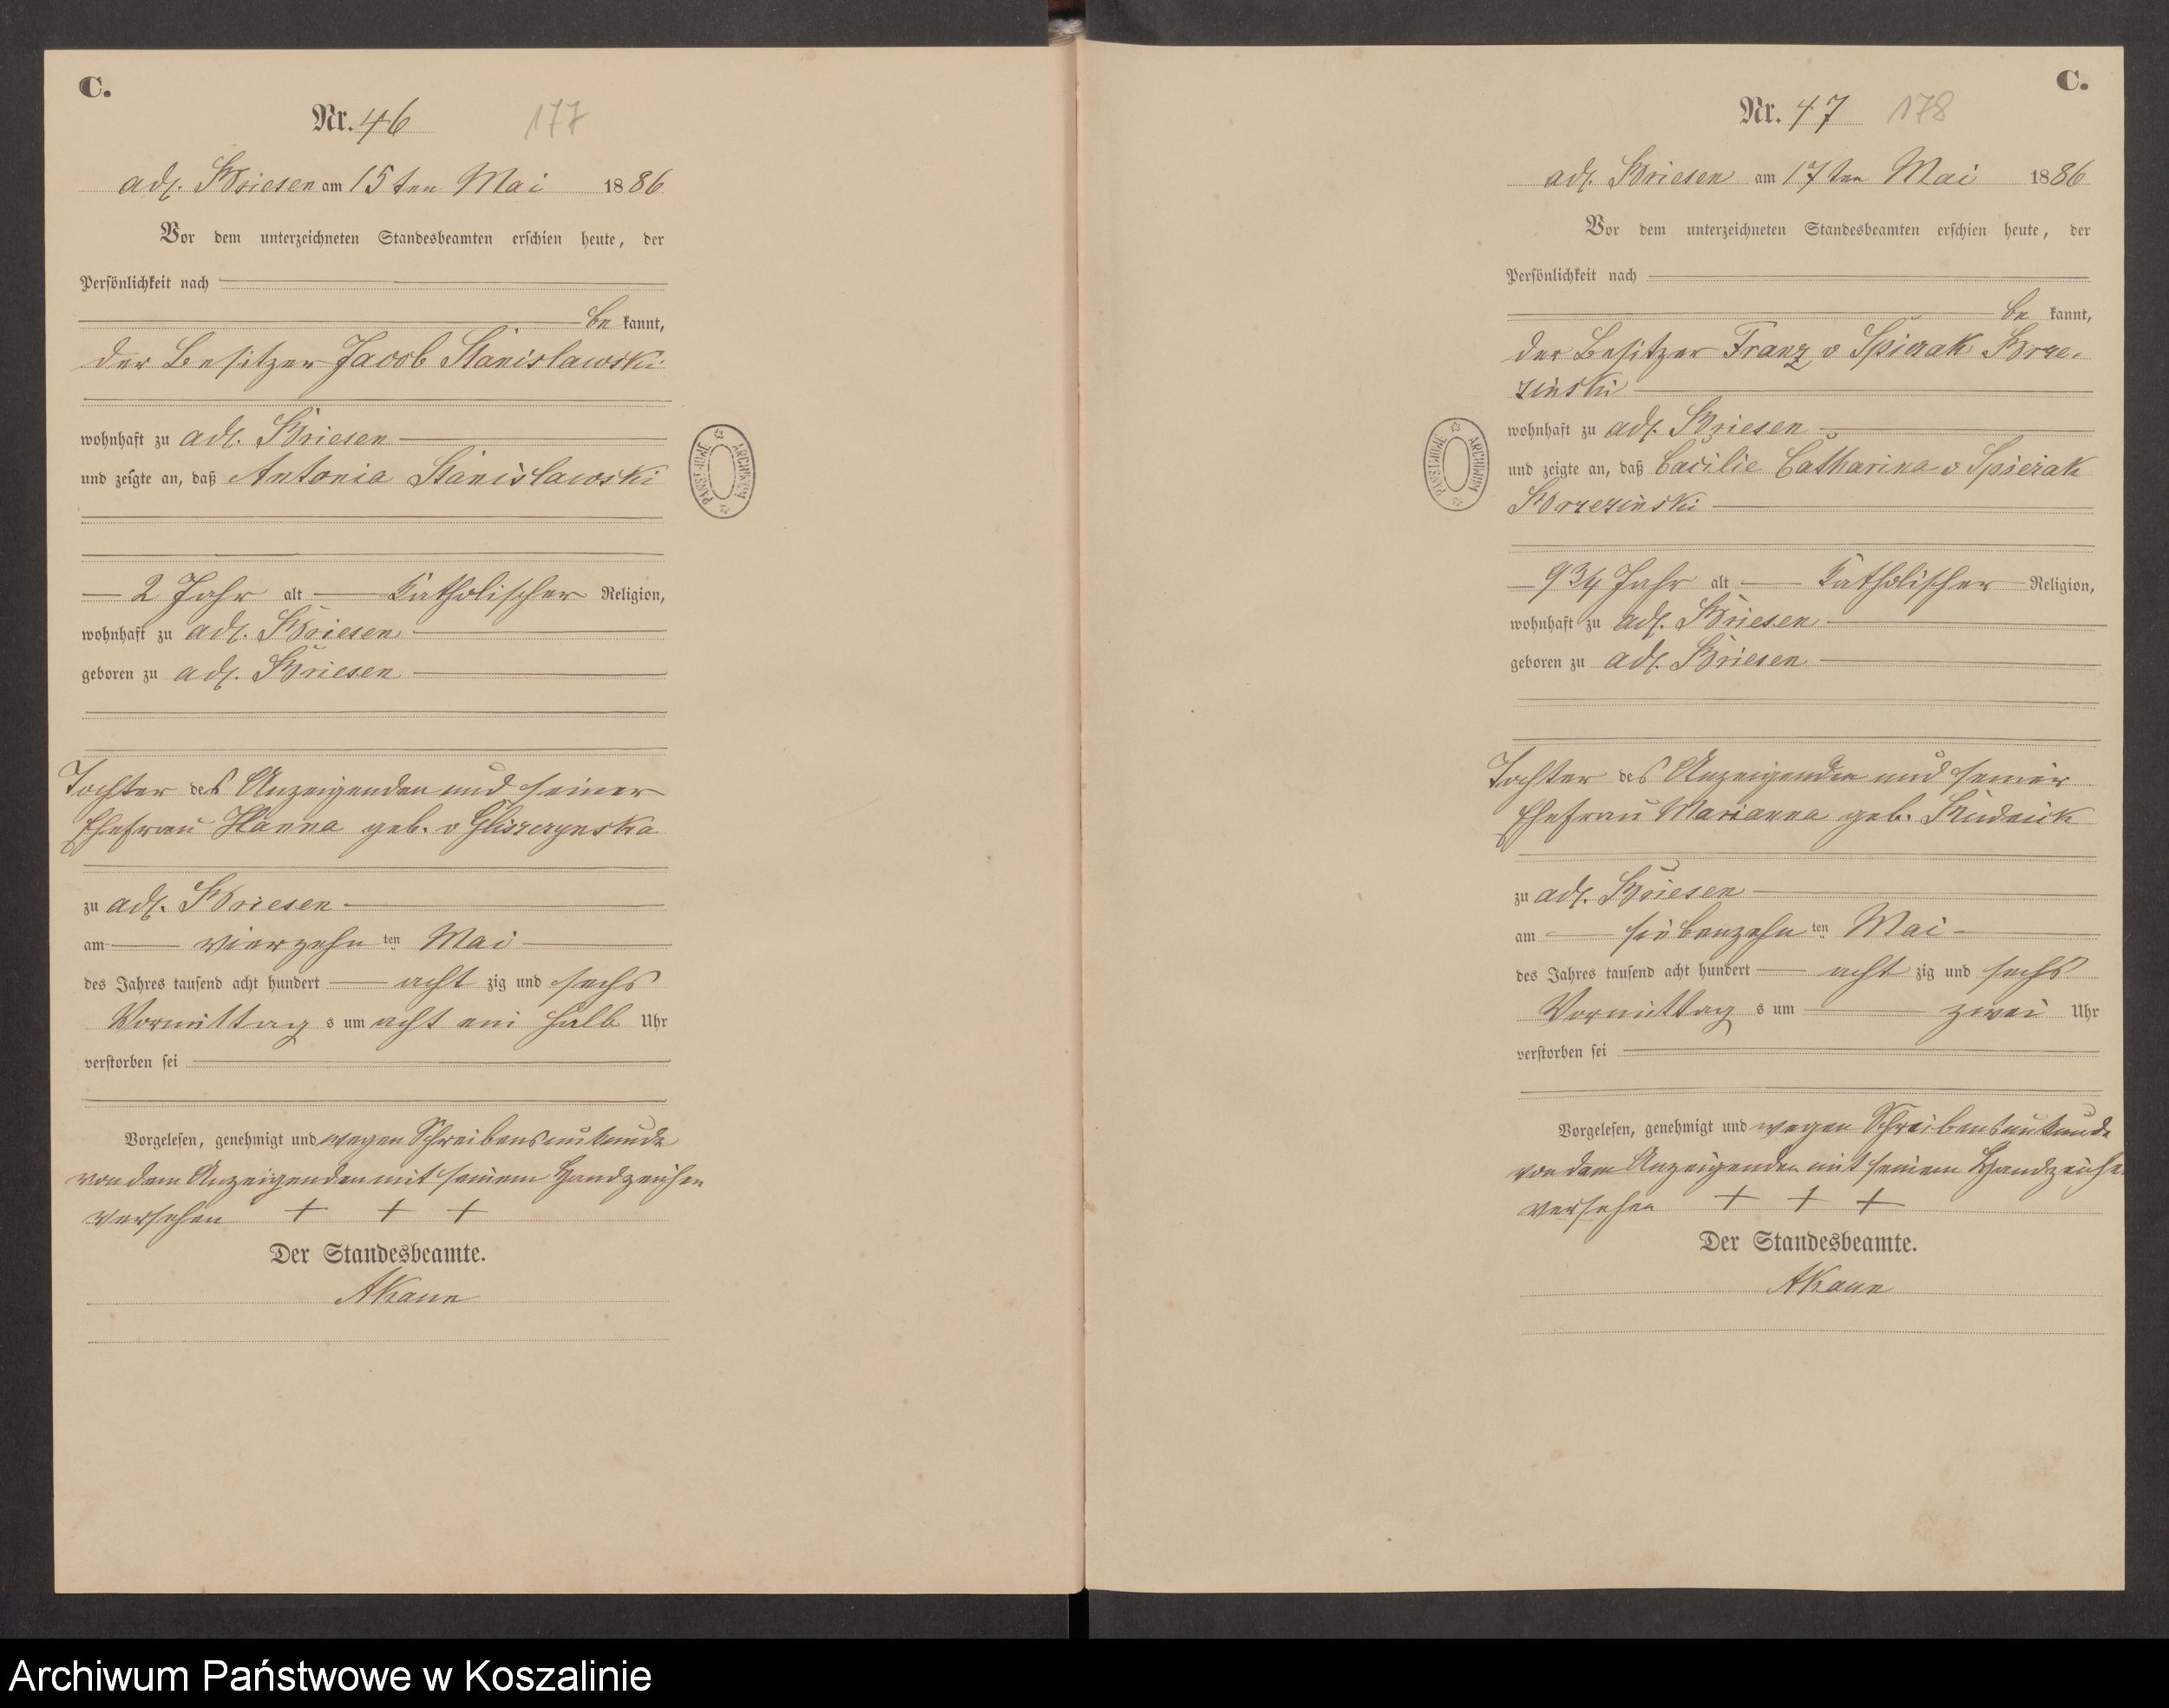 C.
Nr. 46 177
adl. Briesen am 15ten Mai 1886
Vor dem unterzeichneten Standesbeamten erschien heute, der
Persönlichkeit nach
be kannt,
der Besitzer Jacob Stanislawski
wohnhaft zu adl. Briesen
und zeigte an, daß Antonia Stanislawski
2 Jahr alt Katholischer Religion,
wohnhaft zu adl. Briesen
geboren zu adl. Briesen
Tochter des Anzeigenden und seiner
Ehefrau Hanna geb. v Gliszczynska
zu adl. Briesen
am vierzehn ten Mai
des Jahres tausend acht hundert acht zig und sechs
Vormittag s um acht ein halb Uhr
verstorben sei
Vorgelesen, genehmigt und wegen Schreibensunkunde
von dem Anzeigenden mit seinem Handzeichen
versehen + + +
Der Standesbeamte.
PAŃSTWOWE ARCHIWUM
C.
Nr. 47 178
adl. Briesen am 17ten Mai 1886
Vor dem unterzeichneten Standesbeamten erschien heute, der
Persönlichkeit nach
be kannt,
der Besitzer Franz v Spiczak Brze-
zinski
wohnhaft zu adl. Briesen
und zeigte an, daß Cacilie Catharina v Spiczak
Brzezinski
9 3/4 Jahr alt Katholischer Religion,
wohnhaft zu adl. Briesen
geboren zu adl. Briesen
Tochter des Anzeigenden und seiner
Ehefrau Marianna geb. Rudnik
zu adl. Briesen
am siebenzehn ten Mai
des Jahres tausend acht hundert acht zig und sechs
Vormittag s um zwei Uhr
verstorben sei
Vorgelesen, genehmigt und wegen Schreibensunkunde
von dem Anzeigenden mit seinem Handzeichen
versehen + + +
Der Standesbeamte.
PAŃSTWOWE ARCHIWUM
Archiwum Państwowe w Koszalinie